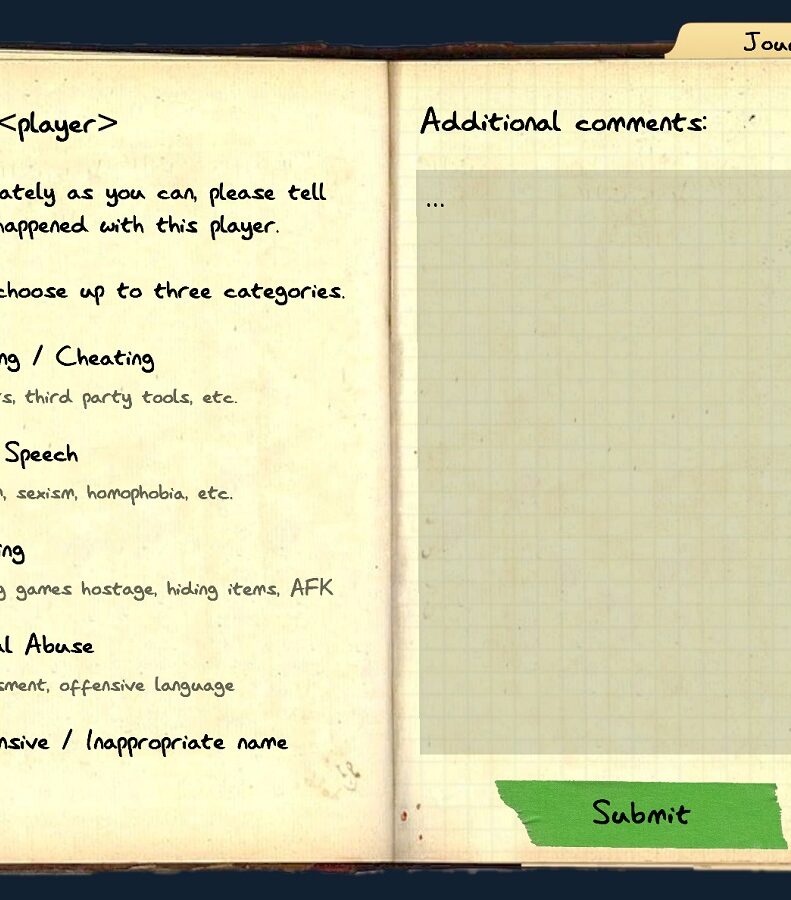 Jou
<player>
ately as you can, please tell
happened with this player.
choose up to three categories.
ng / Cheating
rs, third party tools, etc.
Speech
, sexism, homophobia, etc.
ing
g games hostage, hiding items, AFK
al Abuse
sment, offensive language
nsive / Inappropriate name
Additional comments:
...
Submit